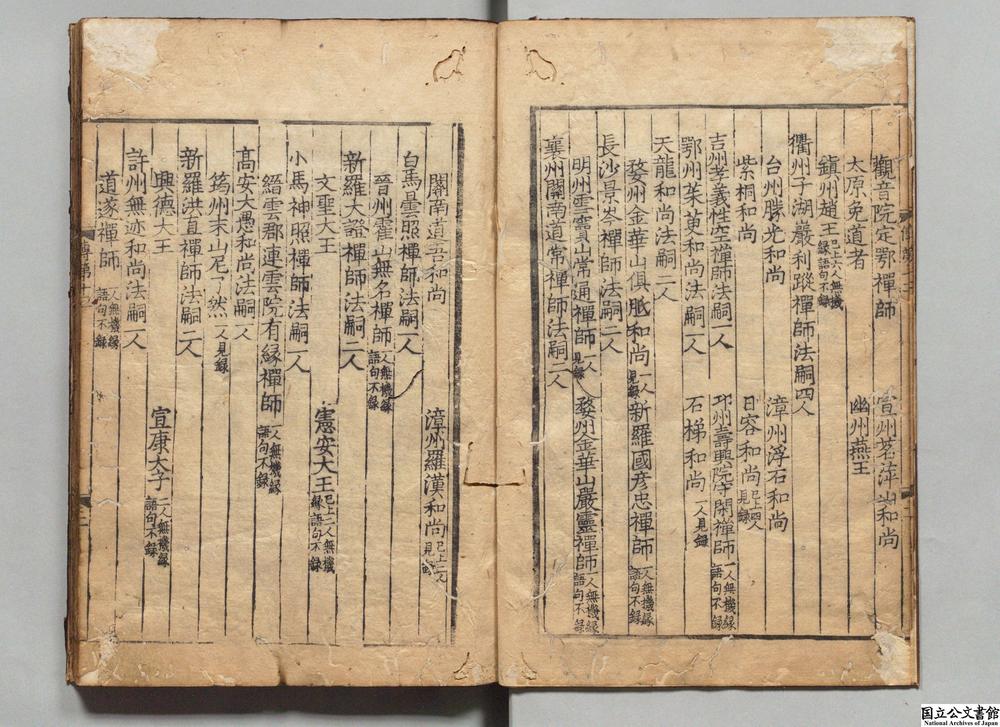 觀音院定鄂禪師 宣州茗萍山和尚
太原免道者 幽州燕王
鎮州趙王 已上六人無機緣語句不錄
衢州子湖巖利蹤禪師法嗣四人
台州勝光和尚 漳州浮石和尚
紫桐和尚 日容和尚 已上四人見錄
吉州孝義性空禪師法嗣一人
鄂州茱萸和尚法嗣二人 邛州壽興院守閑禪師 一人無機緣語句不錄
天龍和尚法嗣二人 石梯和尚 一人見錄
婺州金華山俱胝和尚 一人見錄 新羅國彥忠禪師 一人無機緣語句不錄
長沙景岑禪師法嗣二人
明州雪竇山常通禪師 一人見錄 婺州金華山嚴靈禪師 一人無機緣語句不錄
襄州關南道常禪師法嗣二人
關南道吾和尚 漳州羅漢和尚 已上二人見錄
白馬曇照禪師法嗣一人
晉州霍山無名禪師 一人無機緣語句不錄
新羅大證禪師法嗣二人
文聖大王 憲安大王 已上二人無機緣語句不錄
小馬神照禪師法嗣一人
縉雲郡連雲院有緣禪師 一人無機緣語句不錄
高安大愚和尚法嗣一人
筠州末山尼了然 一人見錄
新羅洪直禪師法嗣二人
興德大王 宣康太子 二人無機緣語句不錄
許州無迹和尚法嗣一人
道遂禪師 一人無機緣語句不錄
国立公文書館
National Archives of Japan